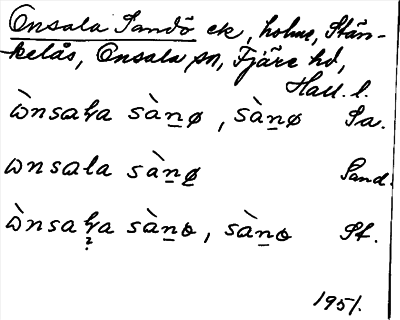 Onsala Sandö ek, holme, Stän-
kelås, Onsala sn, Fjäre hd,
Hall. l.
ὼnsaɫa sàn̲ø, sàn̲ø Sa.
ωnsala sàn̲ø̲ Sand.
ὼnsaɫa sàn̲ɵ, sàn̲ɵ St.
?
1951.